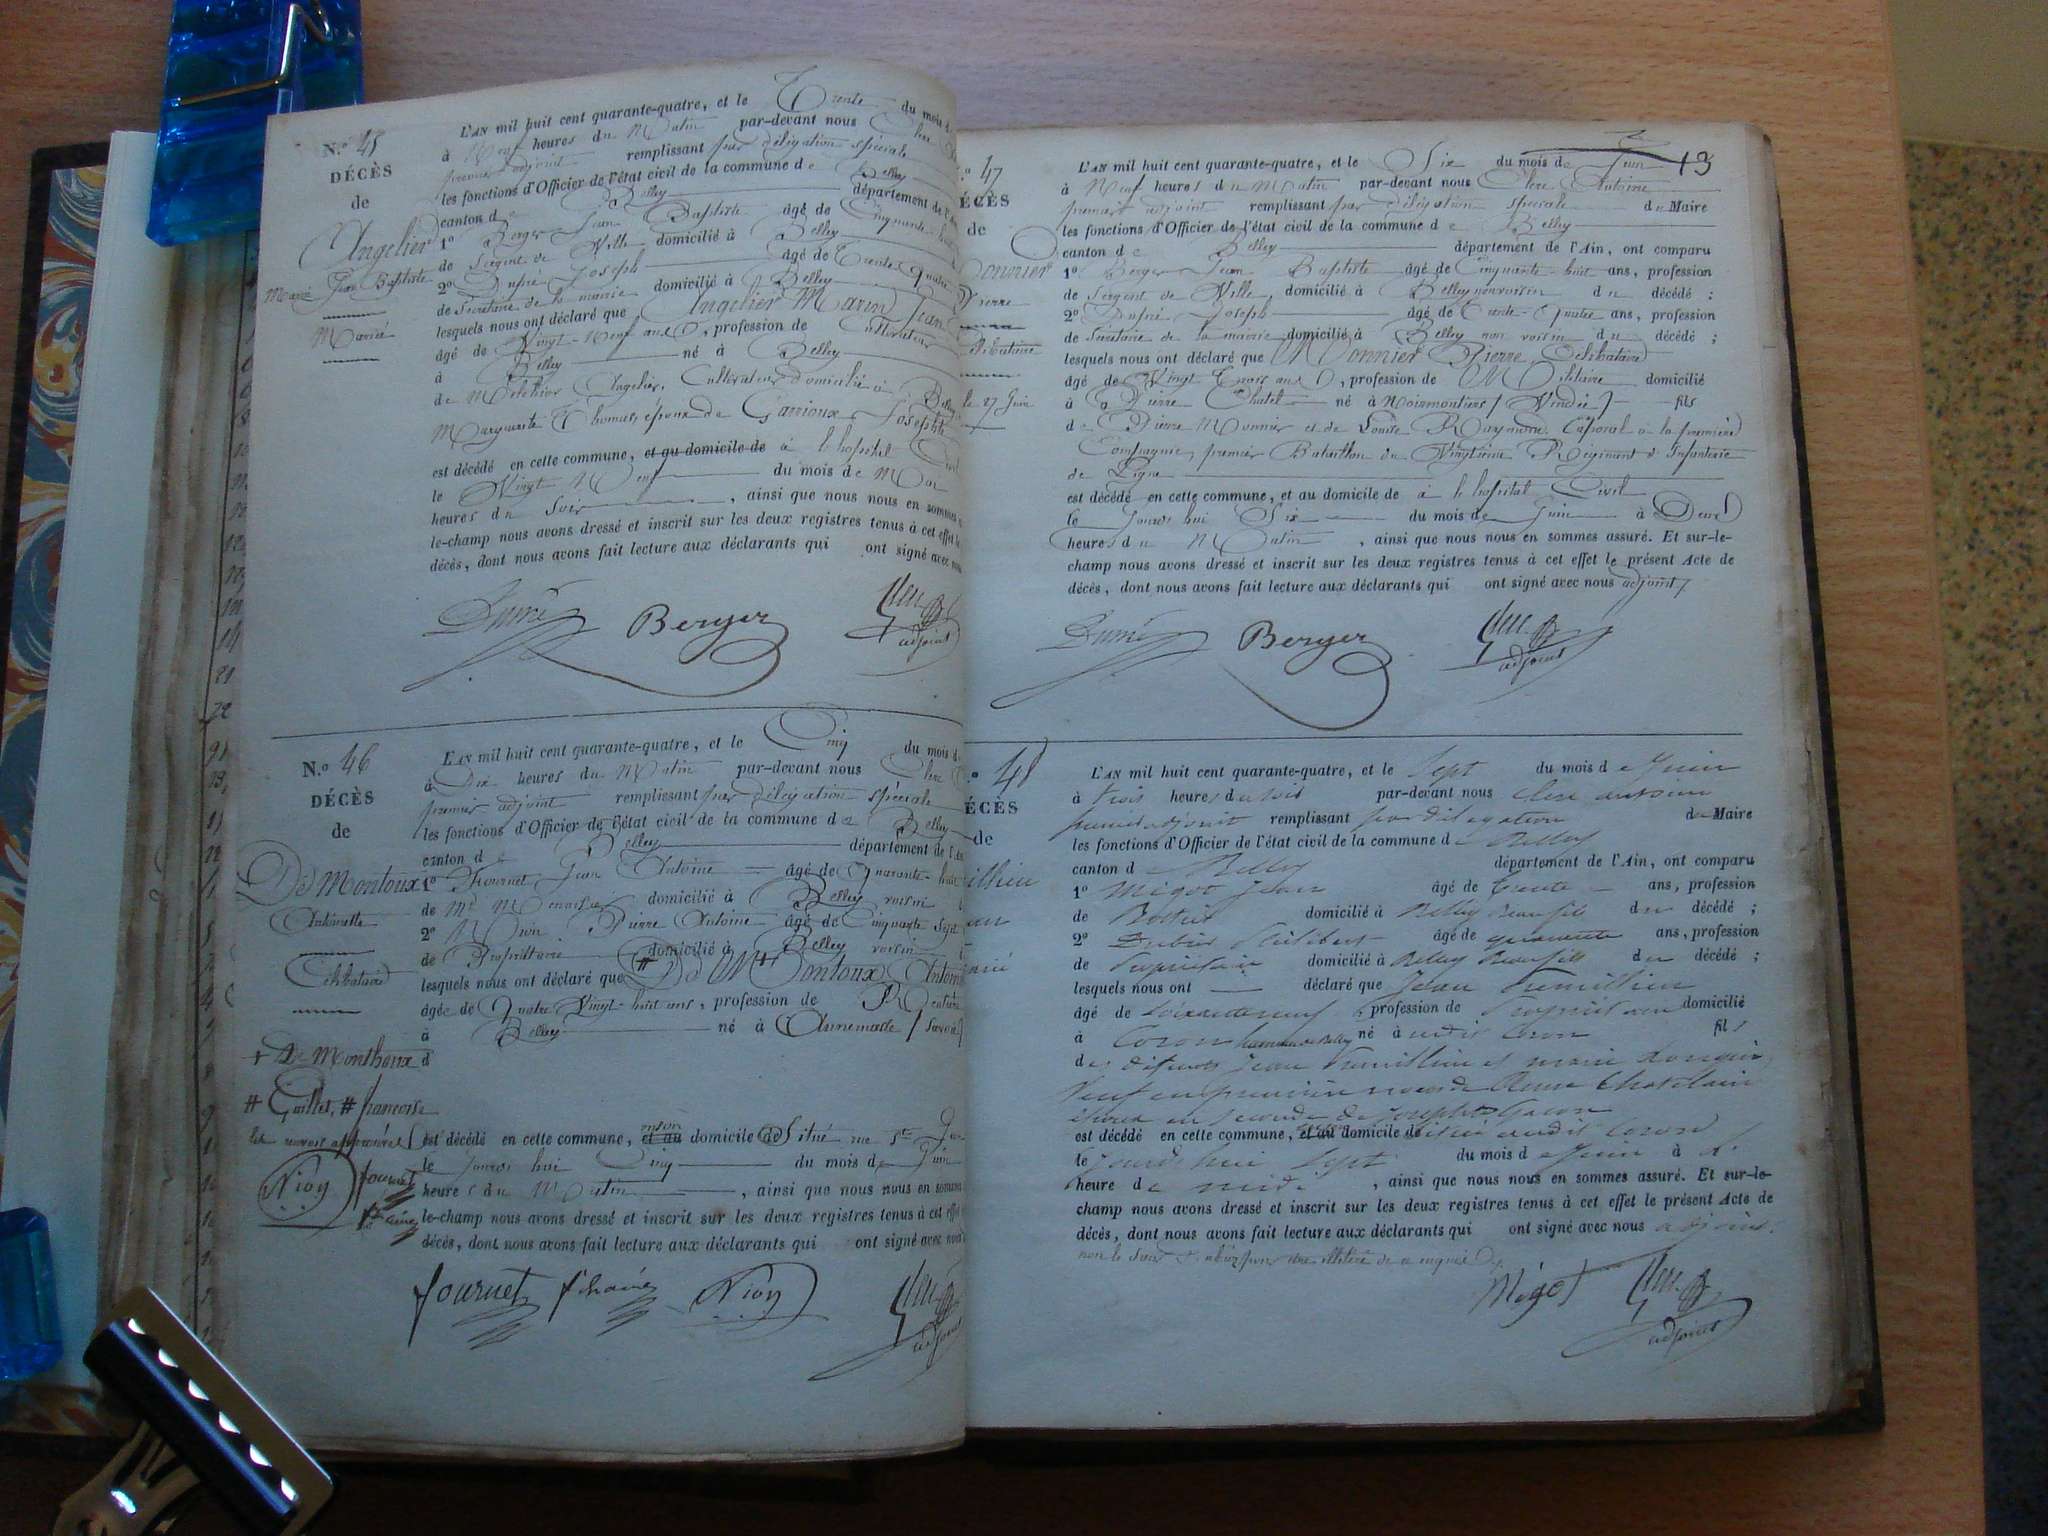 N.º 45
DÉCÈS
de
Angelier
Marin Jean Baptiste
Marié
L'AN mil huit cent quarante-quatre, et le Trente du mois d
à Neuf heures du Matin par-devant nous Clerc
premier adjoint remplissant par délégation spéciale
les fonctions d'Officier de l'état civil de la commune de Belley
canton de Belley département de l'Ain
1º Berger Jean Baptiste âgé de Cinquante huit
de Sergent de Ville domicilié à Belley
2º Dupré Joseph âgé de Trente Quatre
de Secrétaire de la mairie domicilié à Belley
lesquels nous ont déclaré que Angelier Marin Jean
âgé de Vingt-Neuf ans, profession de Cultivateur
à Belley né à Belley
de Melchior Angelier, Cultivateur domicilié à Belley
Marguerite Thomas, époux de Garrioux Josephte
est décédé en cette commune, et au domicile de à l'hopital Civil
le Vingt Neuf du mois de Mai
heures du Soir, ainsi que nous nous en sommes
le-champ nous avons dressé et inscrit sur les deux registres tenus à cet effet le
décès, dont nous avons fait lecture aux déclarants qui ont signé avec nous
Dupré Berger Clerc
adjoint
N.º 46
DÉCÈS
de
De Montoux
Antoinette
Célibataire
L'AN mil huit cent quarante-quatre, et le Cinq du mois d
à Dix heures du Matin par-devant nous Clerc
premier adjoint remplissant par délégation spéciale
les fonctions d'Officier de l'état civil de la commune de Belley
canton de Belley département de l'Ain
1º Fournet Jean Antoine âgé de Quarante-huit
de Md Menuisier domicilié à Belley voisin
2º Nion Pierre Antoine âgé de Cinquante Sept
de Propriétaire domicilié à Belley voisin
lesquels nous ont déclaré que # De Montoux Antoinette
âgée de Quatre Vingt-huit ans, profession de Rentière
à Belley né à Annemasse / Savoie
+ De Monthoux d
# Guillet, # françoise
les renvois approuvés
est décédé en cette commune, et au domicile de Situé rue St Jean
le Jourd'hui Cinq du mois de Juin
heures du Matin, ainsi que nous nous en sommes
le-champ nous avons dressé et inscrit sur les deux registres tenus à cet effet
décès, dont nous avons fait lecture aux déclarants qui ont signé avec nous
Nion fournet
fournet Nion Clerc
adjoint
13
º 47
ÉCÈS
de
Monnier
Pierre
Célibataire
le 27 Juin
L'AN mil huit cent quarante-quatre, et le Six du mois de Juin
à Neuf heures du Matin par-devant nous Clerc Antoine
premier adjoint remplissant par délégation spéciale du Maire
les fonctions d'Officier de l'état civil de la commune de Belley
canton de Belley département de l'Ain, ont comparu
1º Berger Jean Baptiste âgé de Cinquante-huit ans, profession
de Sergent de Ville, domicilié à Belley non voisin du décédé ;
2º Dupré Joseph âgé de Trente-Quatre ans, profession
de Secrétaire de la mairie domicilié à Belley non voisin du décédé ;
lesquels nous ont déclaré que Monnier Pierre Célibataire
âgé de Vingt Trois ans, profession de Militaire domicilié
à Pierre Chatel né à Noirmontiers / Vendée / fils
de Pierre Monnier et de Louise Raymond, Caporal à la première
Compagnie, premier Bataillon du Vingtième Régiment d'Infanterie
de Ligne
est décédé en cette commune, et au domicile de à l'hopital Civil
le Jourd'hui Six du mois de Juin à Deux
heures du Matin, ainsi que nous nous en sommes assuré. Et sur-le-
champ nous avons dressé et inscrit sur les deux registres tenus à cet effet le présent Acte de
décès, dont nous avons fait lecture aux déclarants qui ont signé avec nous adjoint /
Dupré Berger Clerc
adjoint
º 48
ÉCÈS
de
L'AN mil huit cent quarante-quatre, et le Sept du mois de Juin
à trois heures du soir par-devant nous Clerc antoine
premier adjoint remplissant par délégation du Maire
les fonctions d'Officier de l'état civil de la commune de Belley
canton de Belley département de l'Ain, ont comparu
1º Migot Jean âgé de trente ans, profession
de domicilié à Belley Beau fils du décédé ;
2º âgé de quarante ans, profession
de Propriétaire domicilié à Belley Beau fils du décédé ;
lesquels nous ont déclaré que Jean
âgé de Soixante neuf, profession de Propriétaire domicilié
à Coron hameau de Belley né à audit Coron fils
des défunts Jean et marie
Veuf en première noces de Chatelain
époux en seconde de Josephte
est décédé en cette commune, et au domicile de situé audit Coron
le Jourd'hui Sept du mois de Juin à
heure de midi, ainsi que nous nous en sommes assuré. Et sur-le-
champ nous avons dressé et inscrit sur les deux registres tenus à cet effet le présent Acte de
décès, dont nous avons fait lecture aux déclarants qui ont signé avec nous adjoint.
Migot Clerc
adjoint